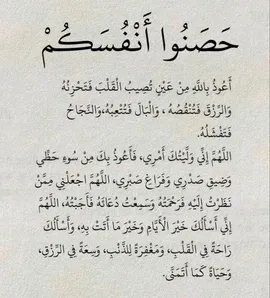 حَصَنُوا أَنْفُسَكُمْ
أَعُوذُ بِاللَّهِ مِنْ عَيْنٍ تُصِيبُ الْقَلْبَ فَتَحْزِنُهُ
وَالرِّزْقَ فَتُنْقُصُهُ ، وَالْبَالَ فَتُتْعِبُهُ،وَالنَّجَاحَ
فَتُفْشِلُهُ.
اللَّهُمَّ إِنِّي وَلَّيْتُكَ أَمْرِي، فَأَعُوذُ بِكَ مِنْ سُوءِ حَظِّي
وَضِيقِ صَدْرِي وَفَرَاغِ صَبْرِي، اللَّهُمَّ اجْعَلْنِي مِمَّنْ
نَظَرْتُ إِلَيْهِ فَرَحْمَتُهُ وَسَمِعْتُ دُعَائَهُ فَأَجَبْتُهُ، اللَّهُمَّ
إِنِّي أَسْأَلُكَ خَيْرَ الْأَيَّامِ وَخَيْرَ مَا أَتَتْ بِهِ، وَأَسْأَلُكَ
رَاحَةً فِي الْقَلْبِ، وَمَغْفِرَةً لِلذَّنْبِ، وَسِعَةً فِي الرِّزْقِ،
وَحَيَاةً كَمَا أَتَمَنَّى.